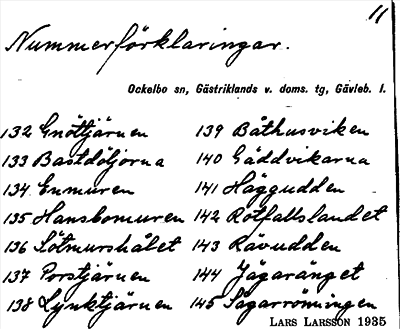 11
Nummerförklaringar.
Ockelbo sn, Gästriklands v. doms. tg, Gävleb. l.
132 Enöttjärnen 139 Båthusviken
133 Bastdöljorna 140 Gäddvikarna
134 Enmuren 141 Häggudden
135 Hansbomuren 142 Rotfallslandet
136 Lötmurshålet 143 Rävudden
137 Porstjärnen 144 Jägaränget
138 Lynktjärnen 145 Sågarröningen
LARS LARSSON 1935